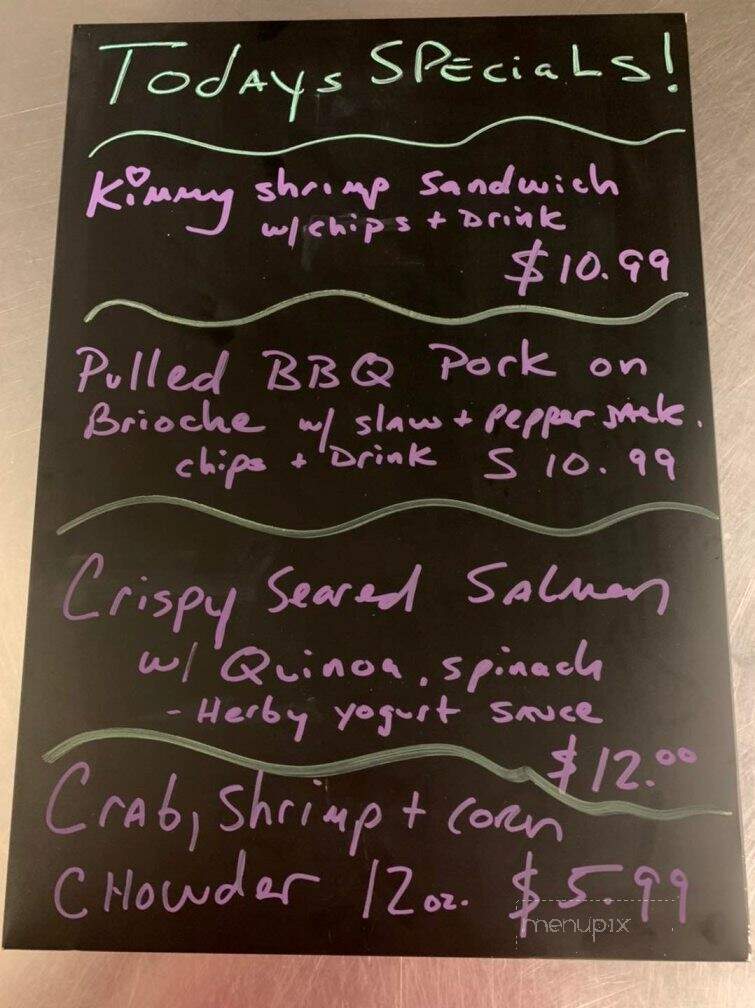 Todays Specials!
Kimmy shrimp Sandwich
w/chips + Drink
$10.99
Pulled BBQ Pork on
Brioche w/ slaw + Pepper Jack.
chips + Drink $ 10.99
Crispy Seared Salmon
w/ Quinoa, spinach
- Herby yogurt sauce
$12.00
Crab, Shrimp + corn
CHowder 12oz. $5.99
menupix